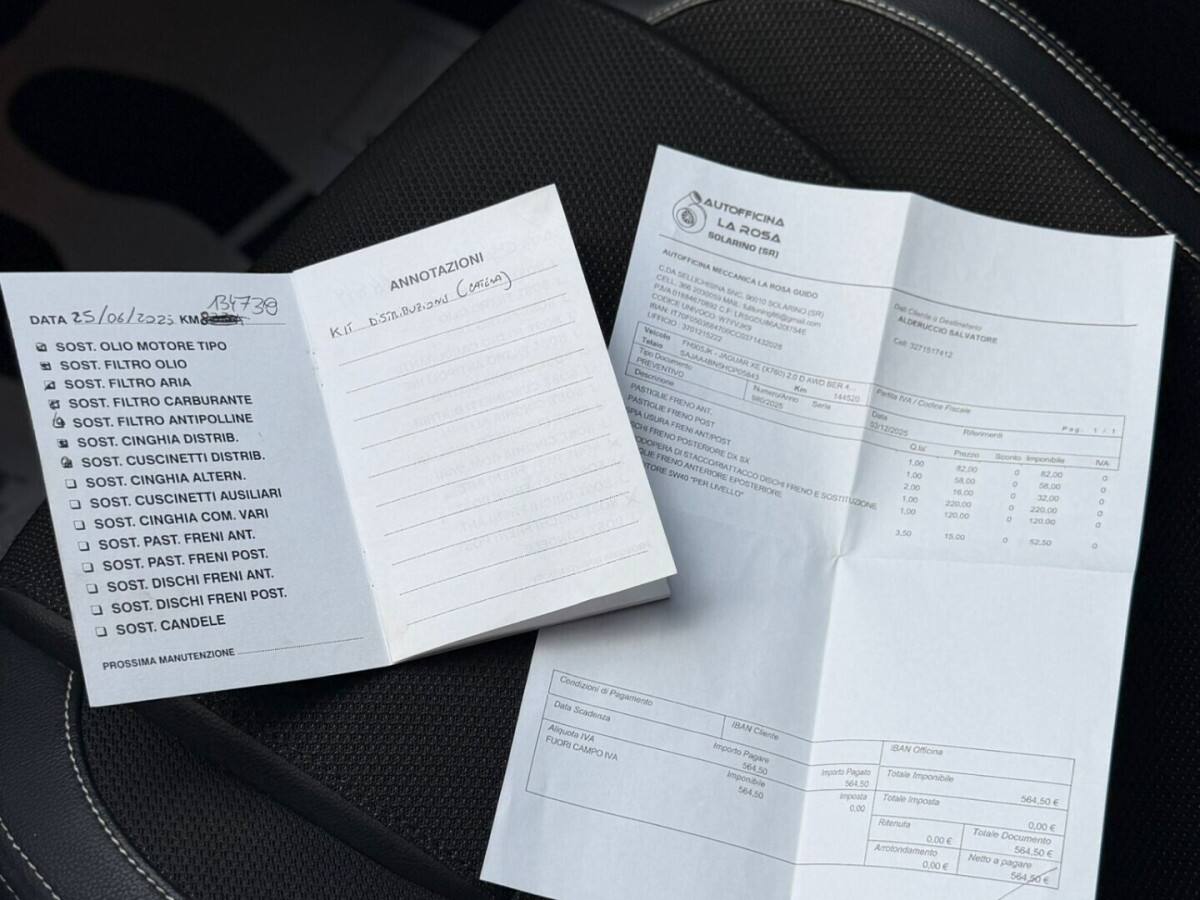 DATA 25/06/2025 KM 134739
SOST. OLIO MOTORE TIPO
SOST. FILTRO OLIO
SOST. FILTRO ARIA
SOST. FILTRO CARBURANTE
SOST. FILTRO ANTIPOLLINE
SOST. CINGHIA DISTRIB.
SOST. CUSCINETTI DISTRIB.
SOST. CINGHIA ALTERN.
SOST. CUSCINETTI AUSILIARI
SOST. CINGHIA COM. VARI
SOST. PAST. FRENI ANT.
SOST. PAST. FRENI POST.
SOST. DISCHI FRENI ANT.
SOST. DISCHI FRENI POST.
SOST. CANDELE
PROSSIMA MANUTENZIONE
ANNOTAZIONI
KIT DISTRIBUZIONE (CATENA)
AUTOFFICINA
LA ROSA
SOLARINO (SR)
AUTOFFICINA MECCANICA LA ROSA GUIDO
C.DA SELLICHISINA SNC, 96010 SOLARINO (SR)
CELL. 366 2030059 MAIL.
P.IVA 01884670892 C.F.
CODICE UNIVOCO: W7YVJK9
IBAN:
UFFICIO : 3701215222
Dati Cliente o Destinatario
ALDERUCCIO SALVATORE
Cell: 3271517412
Veicolo FH905JK - JAGUAR XE (X760) 2.0 D AWD BER 4...
Telaio Km 144520
Tipo Documento Numero/Anno Serie Partita IVA / Codice Fiscale
PREVENTIVO 980/2025 Data 03/12/2025 Riferimenti Pag. 1 / 1
Descrizione Q.tà Prezzo Sconto Imponibile IVA
PASTIGLIE FRENO ANT. 1,00 82,00 0 82,00 0
PASTIGLIE FRENO POST 1,00 58,00 0 58,00 0
PIA USURA FRENI ANT/POST 2,00 16,00 0 32,00 0
SCHI FRENO POSTERIORE DX SX 1,00 220,00 0 220,00 0
ODOPERA DI STACCO/RIATTACCO DISCHI FRENO E SOSTITUZIONE 1,00 120,00 0 120,00 0
GLIE FRENO ANTERIORE EPOSTERIORE
TORE SW40 "PER LIVELLO" 3,50 15,00 0 52,50 0
Condizioni di Pagamento
Data Scadenza IBAN Cliente IBAN Officina
Importo Pagare 564,50 Importo Pagato 564,50
Aliquota IVA Imponibile Imposta
FUORI CAMPO IVA 564,50 0,00
Totale Imponibile 564,50 €
Totale Imposta 0,00 €
Ritenuta 0,00 € Totale Documento 564,50 €
Arrotondamento 0,00 € Netto a pagare 564,50 €